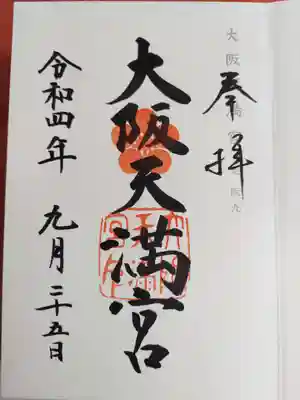 奉拝
大阪天満宮
令和四年 九月二十五日